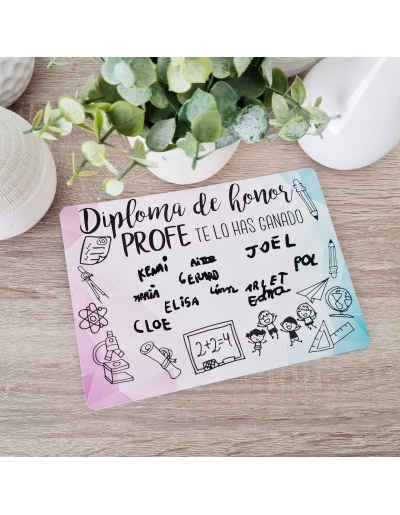 Diploma de honor
PROFE TE LO HAS GANADO
KEMI Aitor JOEL
GERARD POL
MARIA Liam ARLET
ELISA Edna
CLOE
2+2=4